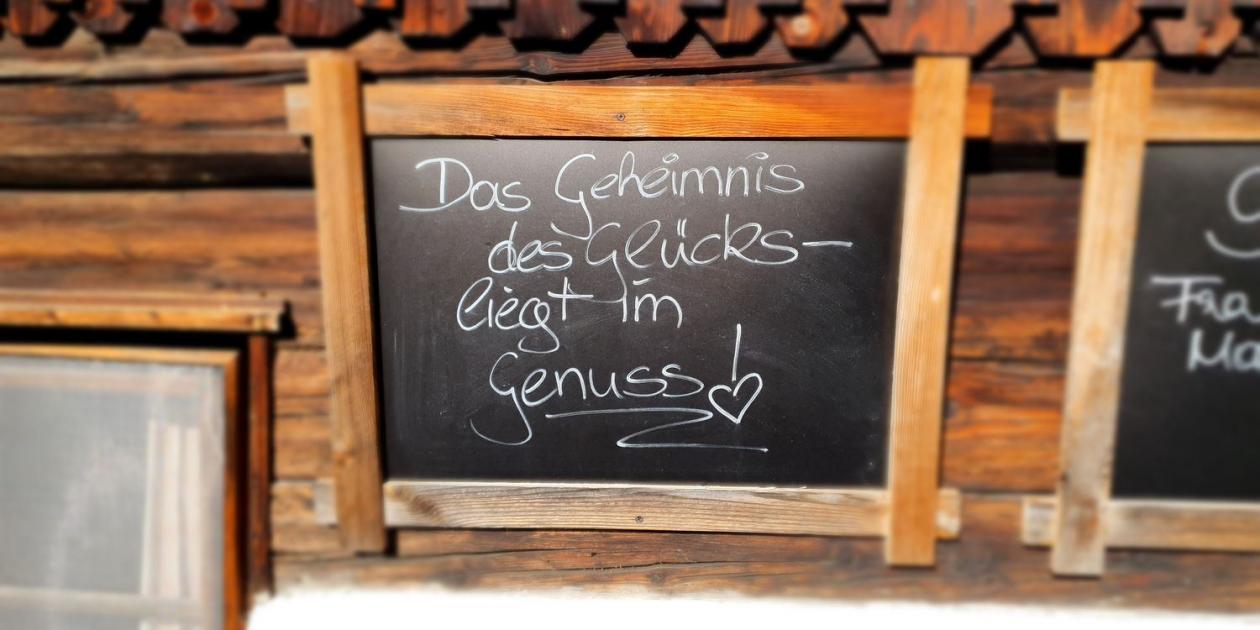 Das Geheimnis
des Glücks-
liegt im
Genuss!